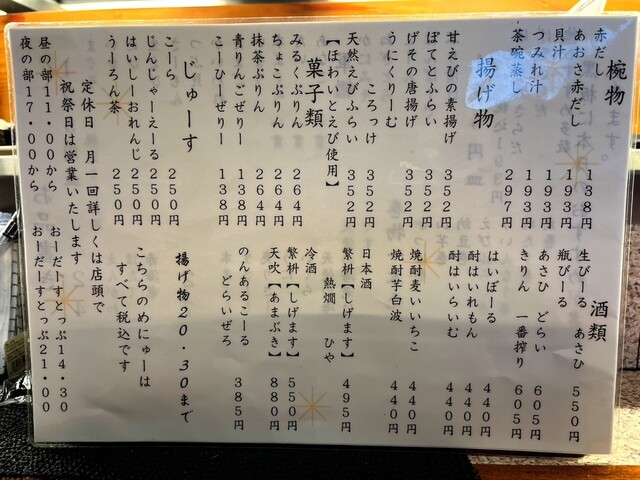 椀物
赤だし 138円
あおさ赤だし 193円
貝汁 193円
つみれ汁 193円
茶碗蒸し 297円
揚げ物
甘えびの素揚げ 352円
ぽてとふらい 352円
げその唐揚げ 352円
うにくりーむ
ころっけ 352円
天然えびふらい 352円
【ほわいとえび使用】
菓子類
みるくぷりん 264円
ちょこぷりん 264円
抹茶ぷりん 264円
青りんごぜりー 138円
こーひーぜりー 138円
じゅーす
こーら 250円
じんじゃーえーる 250円
はいしーおれんじ 250円
うーろん茶 250円
酒類
生びーる あさひ 550円
瓶びーる
あさひ どらい 605円
きりん 一番搾り 605円
はいぼーる 440円
酎はいれもん 440円
酎はいらいむ 440円
焼酎麦いいちこ 440円
焼酎芋白波 440円
日本酒
繁枡【しげます】 495円
熱燗 ひや
冷酒
繁枡【しげます】 550円
天吹【あまぶき】 880円
のんあるこーる
どらいぜろ 385円
揚げ物20・30まで
こちらのめにゅーは
すべて税込です
定休日 月一回詳しくは店頭で
祝祭日は営業いたします
昼の部11・00から おーだーすとっぷ14・30
夜の部17・00から おーだーすとっぷ21・00